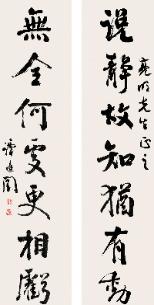 説靜故知猶有動
先生正之
無全何處更相虧
譚延闓